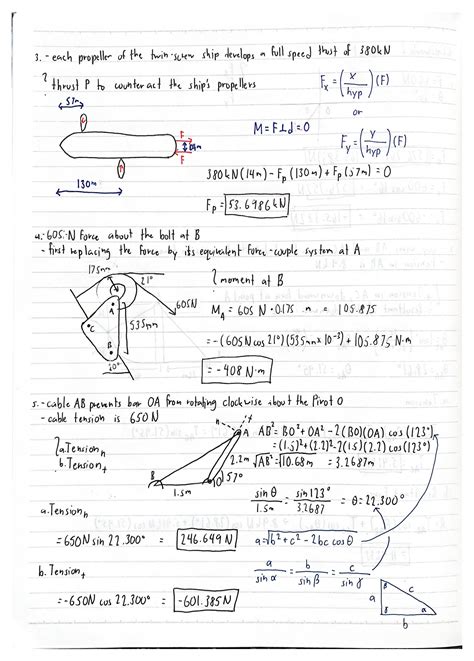 3. - each propeller of the twin-screw ship develops a full speed thust of 380kN
? thrust P to counteract the ship's propellers
Fx = (x/hyp)(F)
or
Fy = (y/hyp)(F)
57m
F
F
14m
130m
M = F⊥d = 0
380kN(14m) - Fp(130m) + Fp(57m) = 0
Fp = 53.6986kN
4. - 605-N Force about the bolt at B
- first replacing the force by its equivalent force-couple system at A
175mm
21°
605N
A
C
B
535mm
20°
? moment at B
MA = 605 N · 0.175 m = 105.875
= -(605N cos 21°)(535mm x 10⁻³) + 105.875 N·m
= -408 N·m
5. - cable AB prevents bar OA from rotating clockwise about the Pivot O
- cable tension is 650N
? a. Tension n
b. Tension t
n
t
A
B
O
2.2m
57°
1.5m
AB² = BO² + OA² - 2(BO)(OA) cos(123°)
= (1.5)² + (2.2)² - 2(1.5)(2.2) cos(123°)
√AB² = √10.68m = 3.2687m
sin θ / 1.5m = sin 123° / 3.2687 = θ = 22.300°
a. Tension n
= 650N sin 22.300° = 246.649 N
a = √b² + c² - 2bc cos θ
b. Tension t
a / sin α = b / sin β = c / sin γ
= -650N cos 22.300° = -601.385N
a
c
b